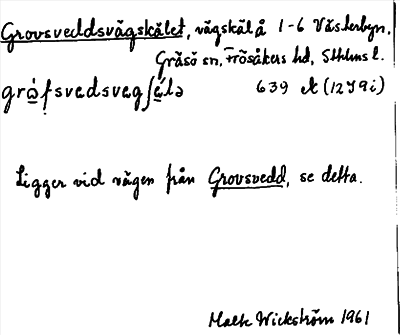 Grovsveddsvägskälet, vägskäl å 1-6 Västerbyn,
Gräsö sn, Frösåkers hd, Sthlms l.
639 A (12 I 9 i)
Ligger vid vägen från Grovsvedd, se detta.
Wickström 1961